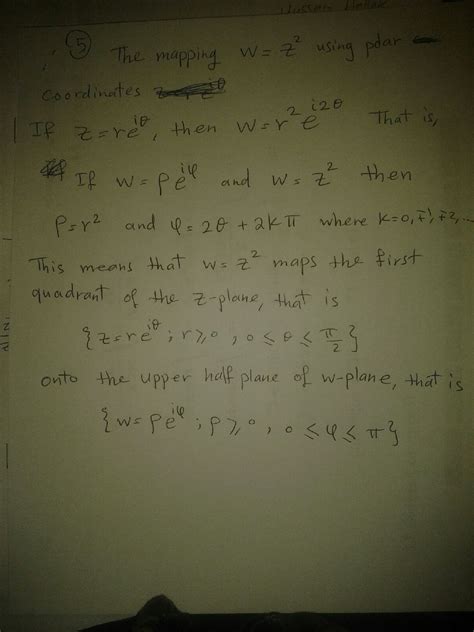 Hussain
⑤ The mapping w = z² using polar
coordinates
If z = re^{iθ}, then w = r² e^{i2θ} That is,
If w = ρe^{iφ} and w = z² then
ρ = r² and φ = 2θ + 2kπ where k = 0, ∓1, ∓2, ...
This means that w = z² maps the first
quadrant of the z-plane, that is
{z = re^{iθ} ; r ≥ 0, 0 ≤ θ ≤ π/2}
onto the upper half plane of w-plane, that is
{w = ρe^{iφ} ; ρ ≥ 0, 0 ≤ φ ≤ π}